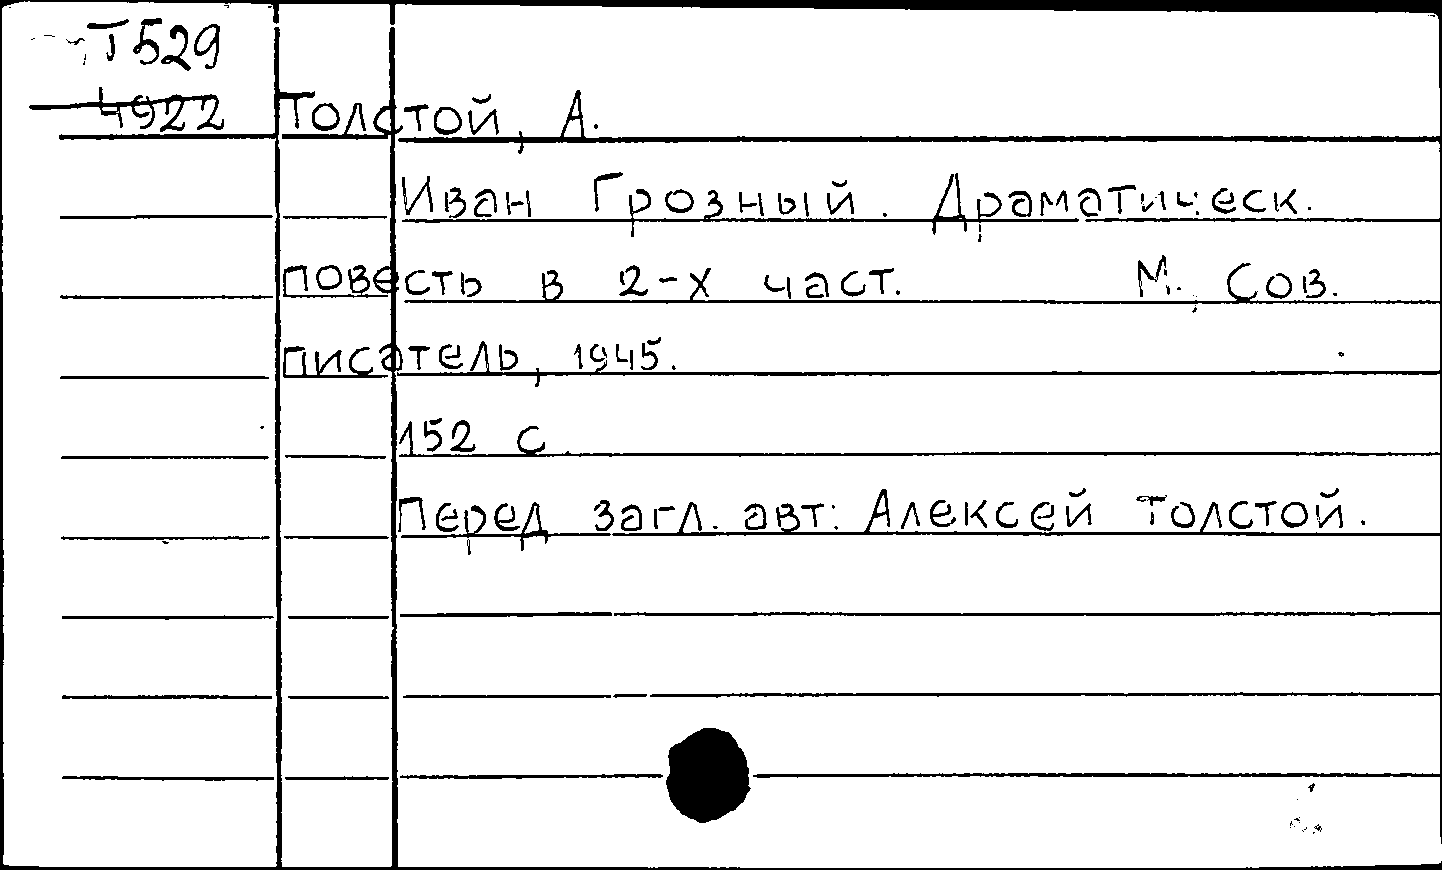 Т529
4922 Толстой, А.
Иван Грозный. Драматическ.
повесть в 2-х част. М., Сов.
писатель, 1945.
152 с.
Перед загл. авт: Алексей Толстой.